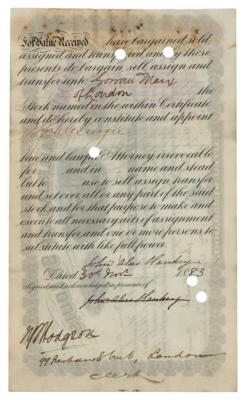 For Value Received have bargained, sold
assigned and transferred and by these
presents do bargain, sell, assign and
transfer unto Marx
of London the
Stock named in the within Certificate
and do hereby constitute and appoint
true and lawful Attorney irrevocable to
for and in name and stead
but to use to sell assign transfer
and set over all or any part of the said
stock, and for that purpose to make and
execute all necessary acts of assignment
and transfer, and one or more persons to
substitute with like full power.
John Alex Hankey
Dated 30 Novr. 1883
Signed and acknowledged in presence of
John Alex Hankey
Hodgson
London
Clerk